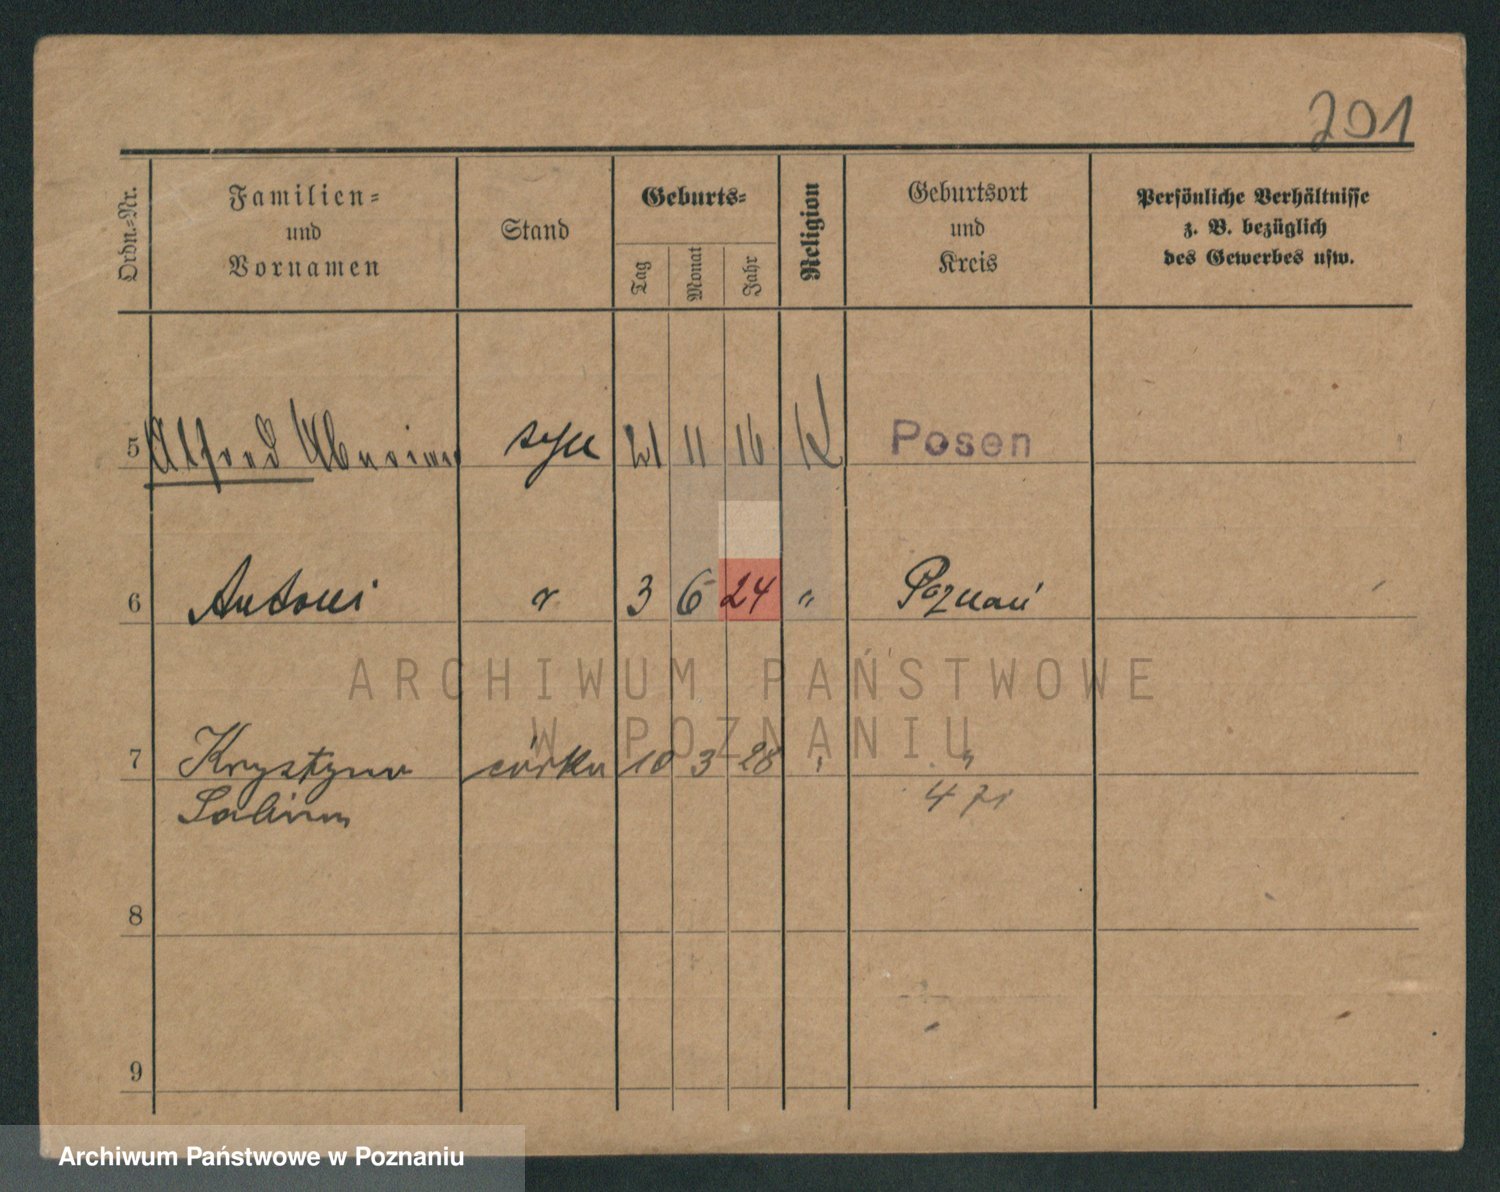 201
Ordn.-Nr.
Familien-
und
Vornamen
Stand
Geburts-
Tag
Monat
Jahr
Religion
Geburtsort
und
Kreis
Persönliche Verhältnisse
z. B. bezüglich
des Gewerbes usw.
5 Alfred syn 21 11 16 K Posen
6 Antoni " 3 6 24 " Poznań
ARCHIWUM PAŃSTWOWE
W POZNANIU
7 Krystyna córka 10 3 28 " "
Sabina
8
9
Archiwum Państwowe w Poznaniu